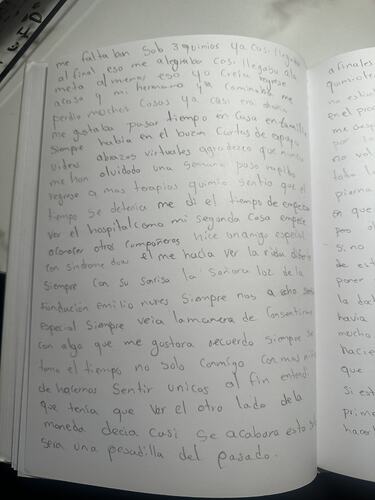 me faltaban sob 3 quimios ya casi llegaba
al final eso me alegraba casi llegaba ala
meta al menos eso yo creia regrese
a casa y mi hermana ya caminaba me
perdio muchas cosas ya casi en
me gostaba pasar tiempo en casa en familia
siempre habia en el buzon cartas de apoyo
videos abrazos virtuales agradezco que nunca
me han olvidado una semana paso rapido
regrese a mas terapias quimio sentia que el
tiempo se detenia me di el tiempo de empezar
ver el hospital como mi segunda casa empece
aconocer otros compañeros hice un amigo especial
con sindrome dow el me hacia ver la vida
siempre con su sonrisa la señora luz de la
fundación emilio nures siempre nos a
especial siempre veia la manera de consentirme
con algo que me gostara recuerdo siempre se
toma el tiempo no solo conmigo con mas niños
de hacernos sentir unicos al fin entendi
que tenia que ver el otro lado de la
moneda decia casi se acabara esto
sera una pesadilla del pasado.
afinales
en que
pero
si no
de est
poner
la da
havia
mucho
hacie
que
si est
prim
hacer